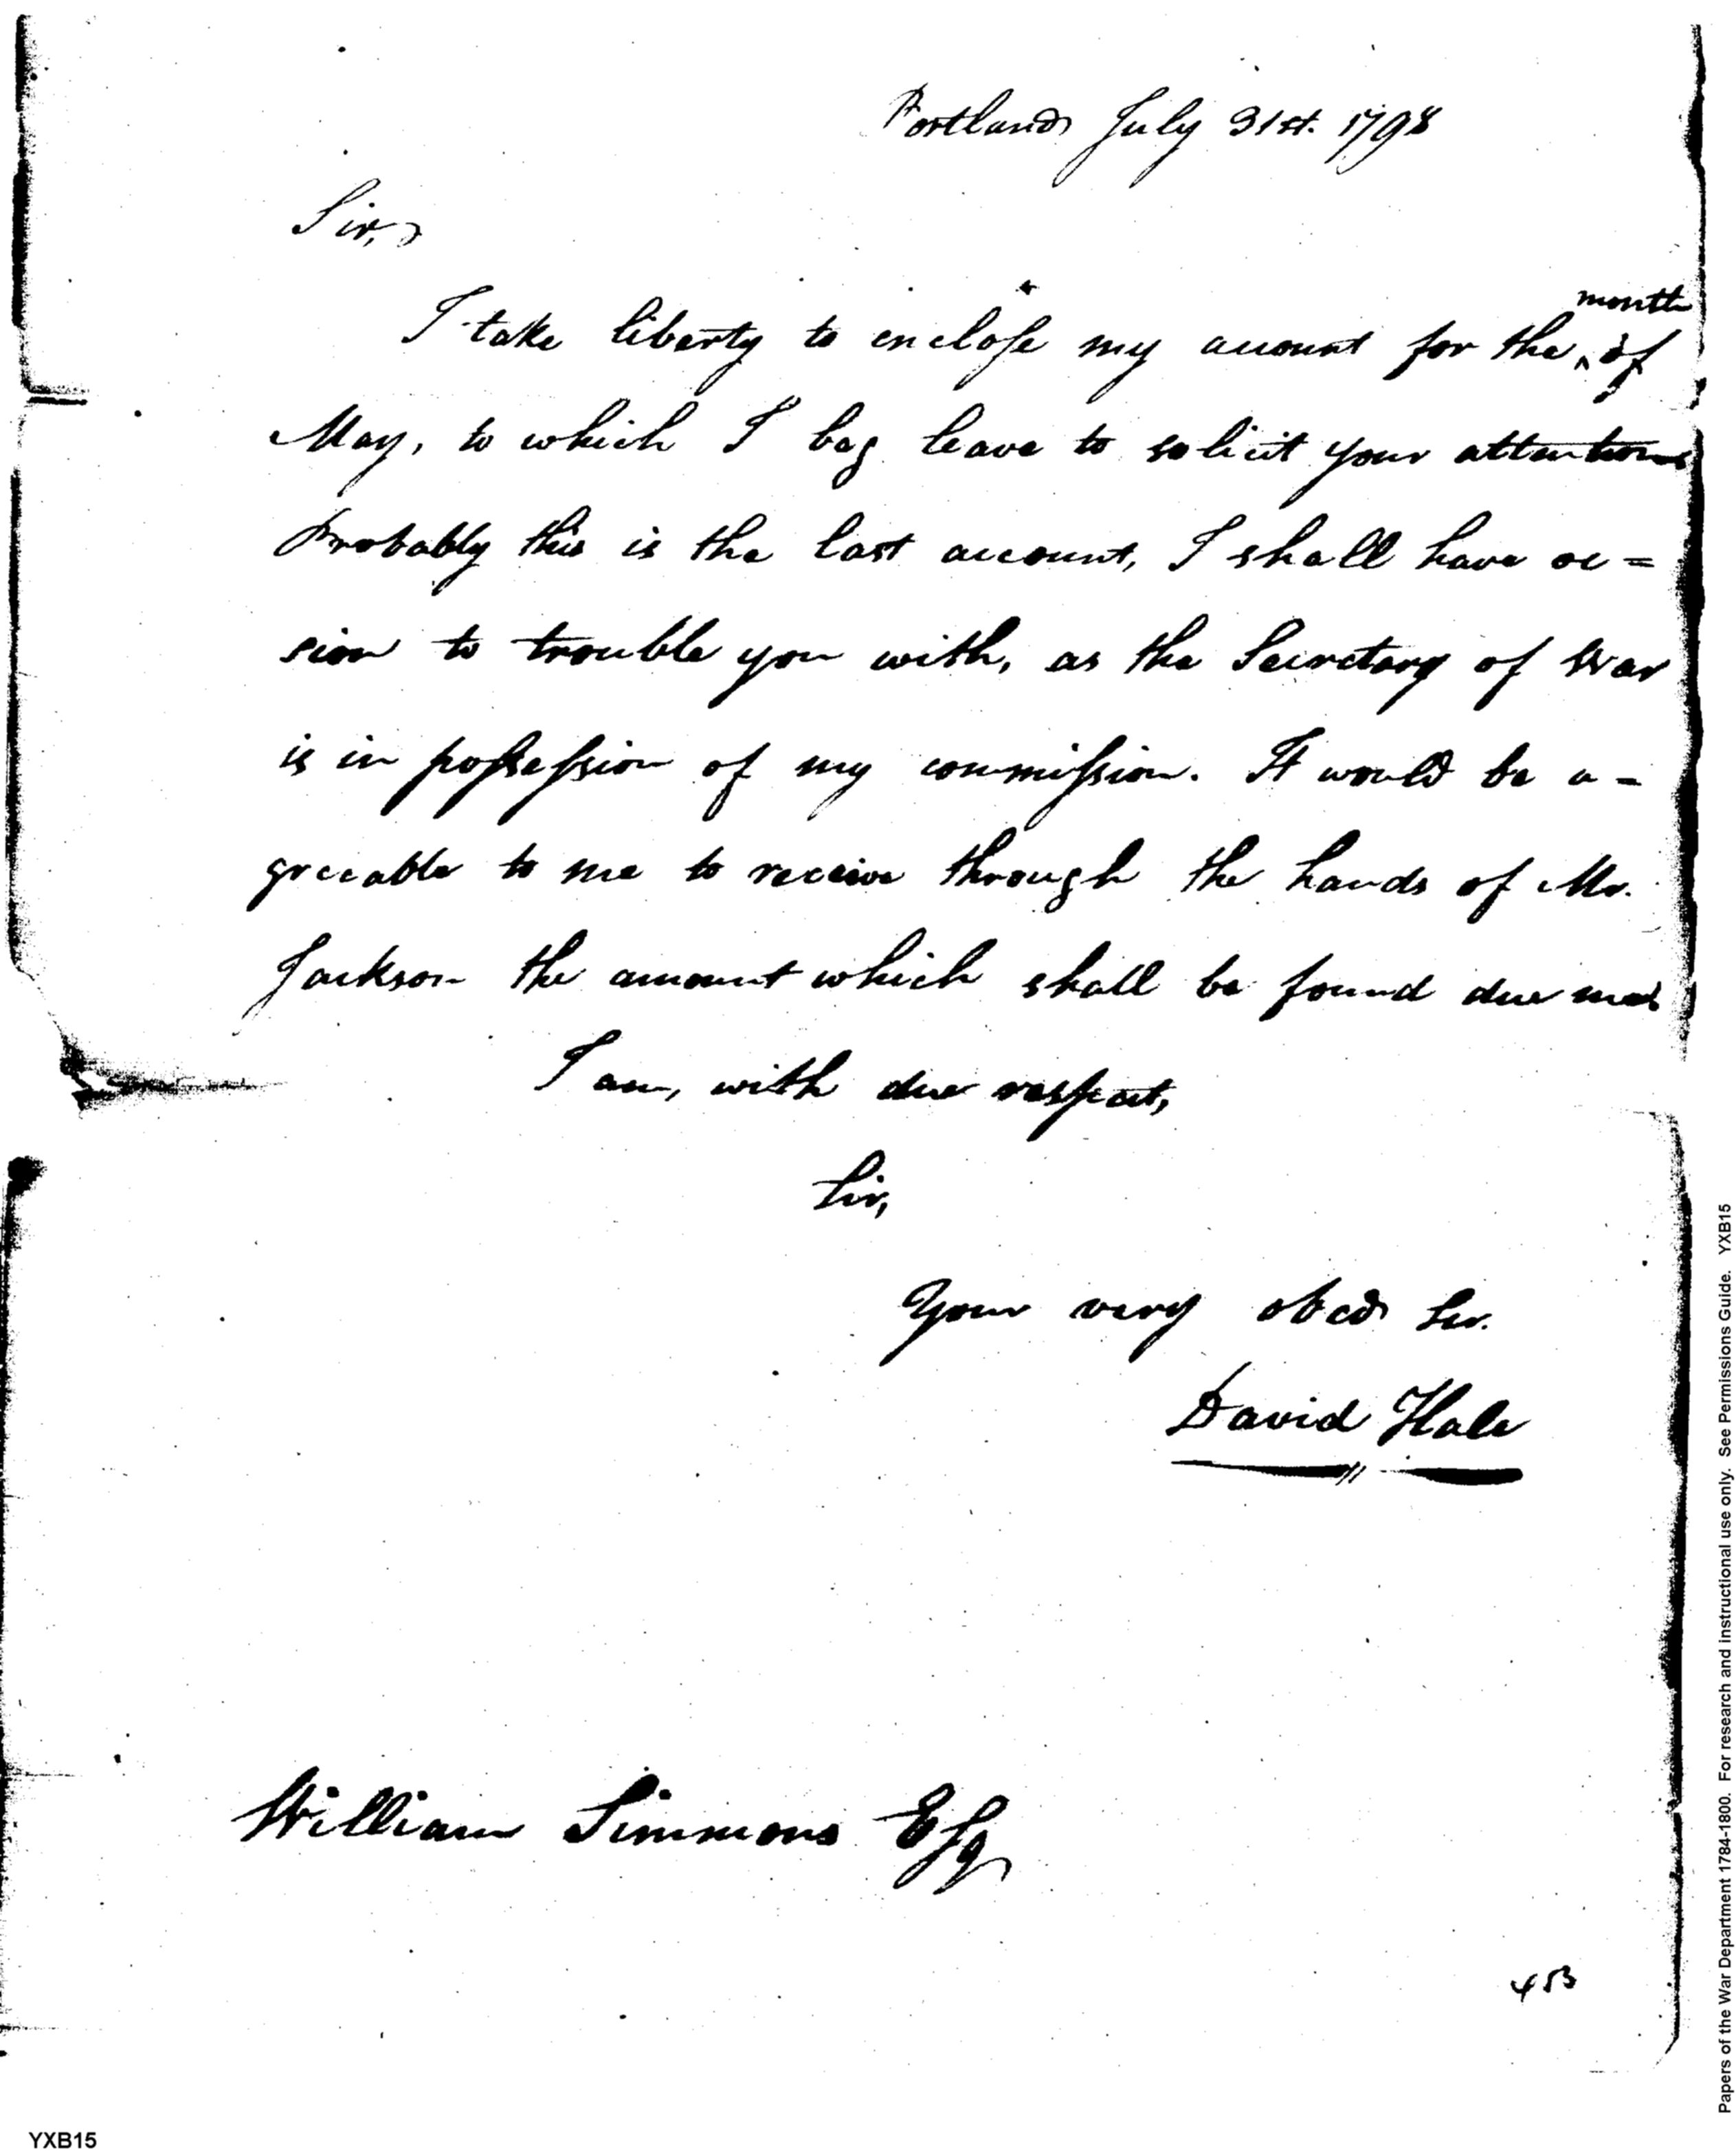 Portland July 31st. 1798
Sir,
I take liberty to enclose my account for the month of
May, to which I beg leave to solicit your attention
Probably this is the last account, I shall have oc=
sion to trouble you with, as the Secretary of War
is in possession of my commission. It would be a-
greeable to me to receive through the hands of Mr.
Jackson the amount which shall be found due me.
I am, with due respect,
Sir,
Your very obed Ser.
David Hale
William Simmons Esq
453
YXB15
Papers of the War Department 1784-1800. For research and instructional use only. See Permissions Guide. YXB15